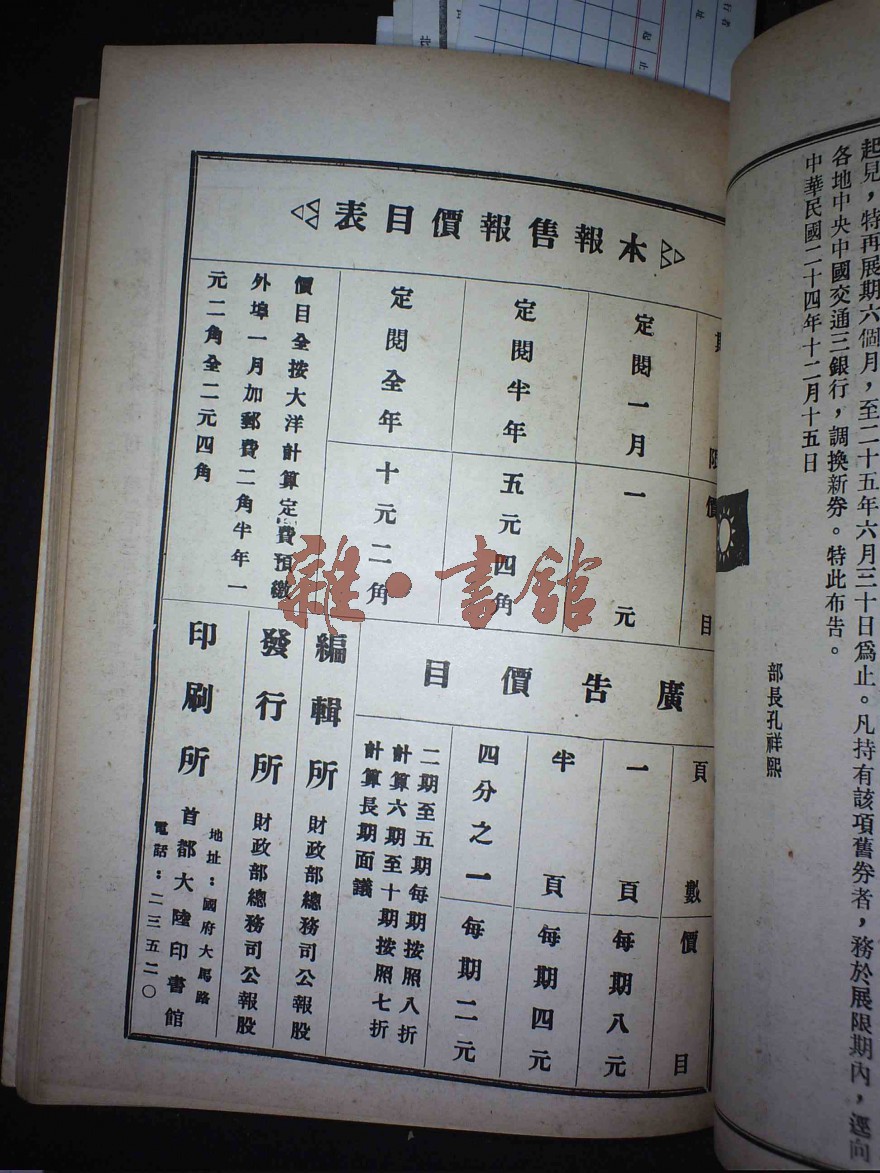 起見，特再展期六個月，至二十五年六月三十日爲止。凡持有該項舊券者，務於展限期內，逕向
各地中央中國交通三銀行，調換新券。特此布告。
中華民國二十四年十二月十五日
部長孔祥熙
本報售報價目表
期限
價目
定閱一月
一元
定閱半年
五元四角
定閱全年
十元二角
價目全按大洋計算定費預繳
外埠一月加郵費二角半年一
元二角全二元四角
廣告價目
頁數
價目
一頁
每期八元
半頁
每期四元
四分之一
每期二元
二期至五期每期按照八折
計算六期至十期按照七折
計算長期面議
編輯所 財政部總務司公報股
發行所 財政部總務司公報股
印刷所 首都大陸印書館
地址：國府大馬路
電話：二三五二〇
雜·書館